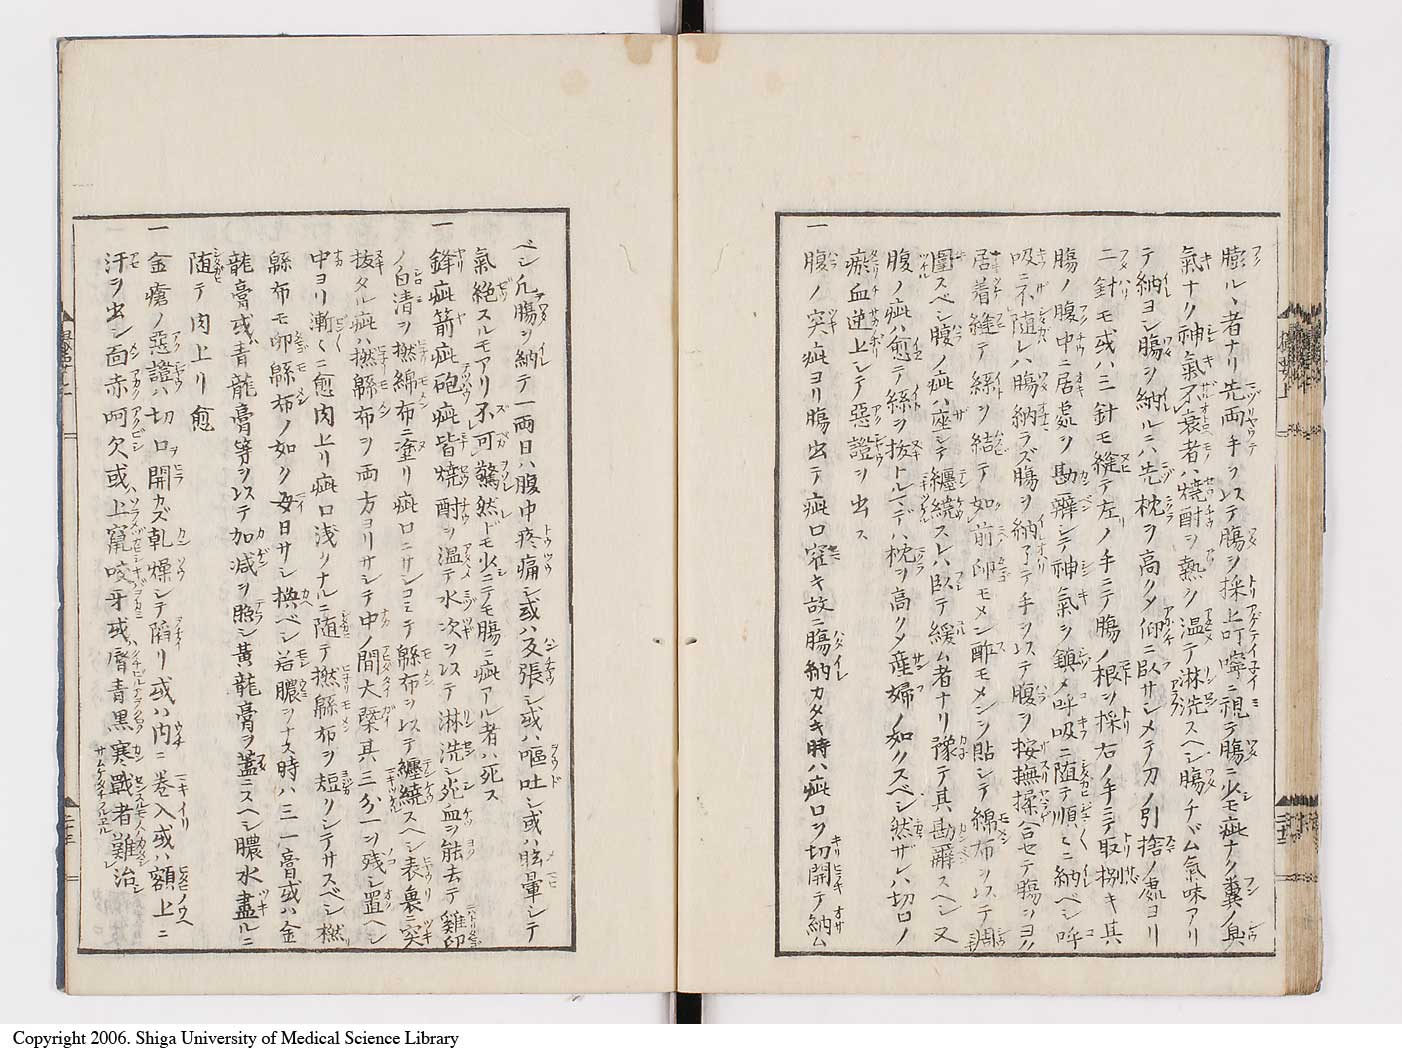 膨ルヽ者ナリ先両手ヲ以テ腸ヲ採上叮嚀ニ視テ腸ニ少モ疵ナク糞ノ臭
氣ナク神氣不衰者ハ焼酎ヲ熱シ温テ淋洗スベシ腸チバム氣味アリ
テ納ヨシ腸ヲ納ルニハ先枕ヲ高クメ仰ニ臥サシメテ刀ノ引捨ノ處ヨリ
二針モ或ハ三針モ縫テ左ノ手ニテ腸ノ根ヲ採右ノ手ニテ取捌キ其
腸ノ腹中ニ居処ヲ勘辨シテ神氣ヲ鎮メ呼吸ニ随テ順々ニ納ベシ呼
吸ニ不随レハ腸納ラズ腸ヲ納了テ手ヲ以テ腹ヲ按撫揉合セテ腸ヲヨク
居着縫テ絲ヲ結テ如前卵モメン酢モメンヲ貼シテ綿布ヲ以テ週
圍スベシ腹ノ疵ハ座シテ纏繞スレハ臥テ緩ム者ナリ豫テ其勘辨スベシ又
腹ノ疵ハ愈テ絲ヲ抜トルマデハ枕ヲ高クメ産婦ノ如クスベシ然ザレハ切口ノ
瘀血逆上シテ惡證ヲ出ス
一 腹ノ突疵ヨリ腸出テ疵口窄キ故ニ腸納カタキ時ハ疵口ヲ切開テ納ム
ベシ凡腸ヲ納テ一両日ハ腹中疼痛シ或ハ反張シ或ハ嘔吐シ或ハ眩暈シテ
氣絶スルモアリ不可驚然ドモ少ニテモ腸ニ疵アル者ハ死ス
一 鋒疵箭疵砲疵皆焼酎ヲ温テ水次ヲ以テ淋洗シ死血ヲ能去テ雞卵
ノ白清ヲ撚綿布ニ塗リ疵口ニサシコミテ緜布ヲ以テ纏繞スベシ表裏ニ突
抜タル疵ハ撚緜布ヲ両方ヨリサシテ中ノ間大槩其三分一ヲ残シ置ベシ
中ヨリ漸々ニ愈肉上リ疵口浅クナルニ随テ撚緜布ヲ短クシテサスベシ撚
緜布モ卵緜布ノ如ク毎日サシ換ベシ若膿ヲナス時ハ三一膏或ハ金
龍膏或青龍膏等ヲ以テ加減ヲ照シ黄龍膏ヲ蓋ニスベシ膿水盡ルニ
随テ肉上リ愈
一 金瘡ノ惡證ハ切口開カズ乾燥シテ陷リ或ハ内ニ巻入或ハ額上ニ
汗ヲ出シ面赤呵欠或ハ上竄咬牙或ハ唇青黒寒戰者難治
Copyright 2006. Shiga University of Medical Science Library